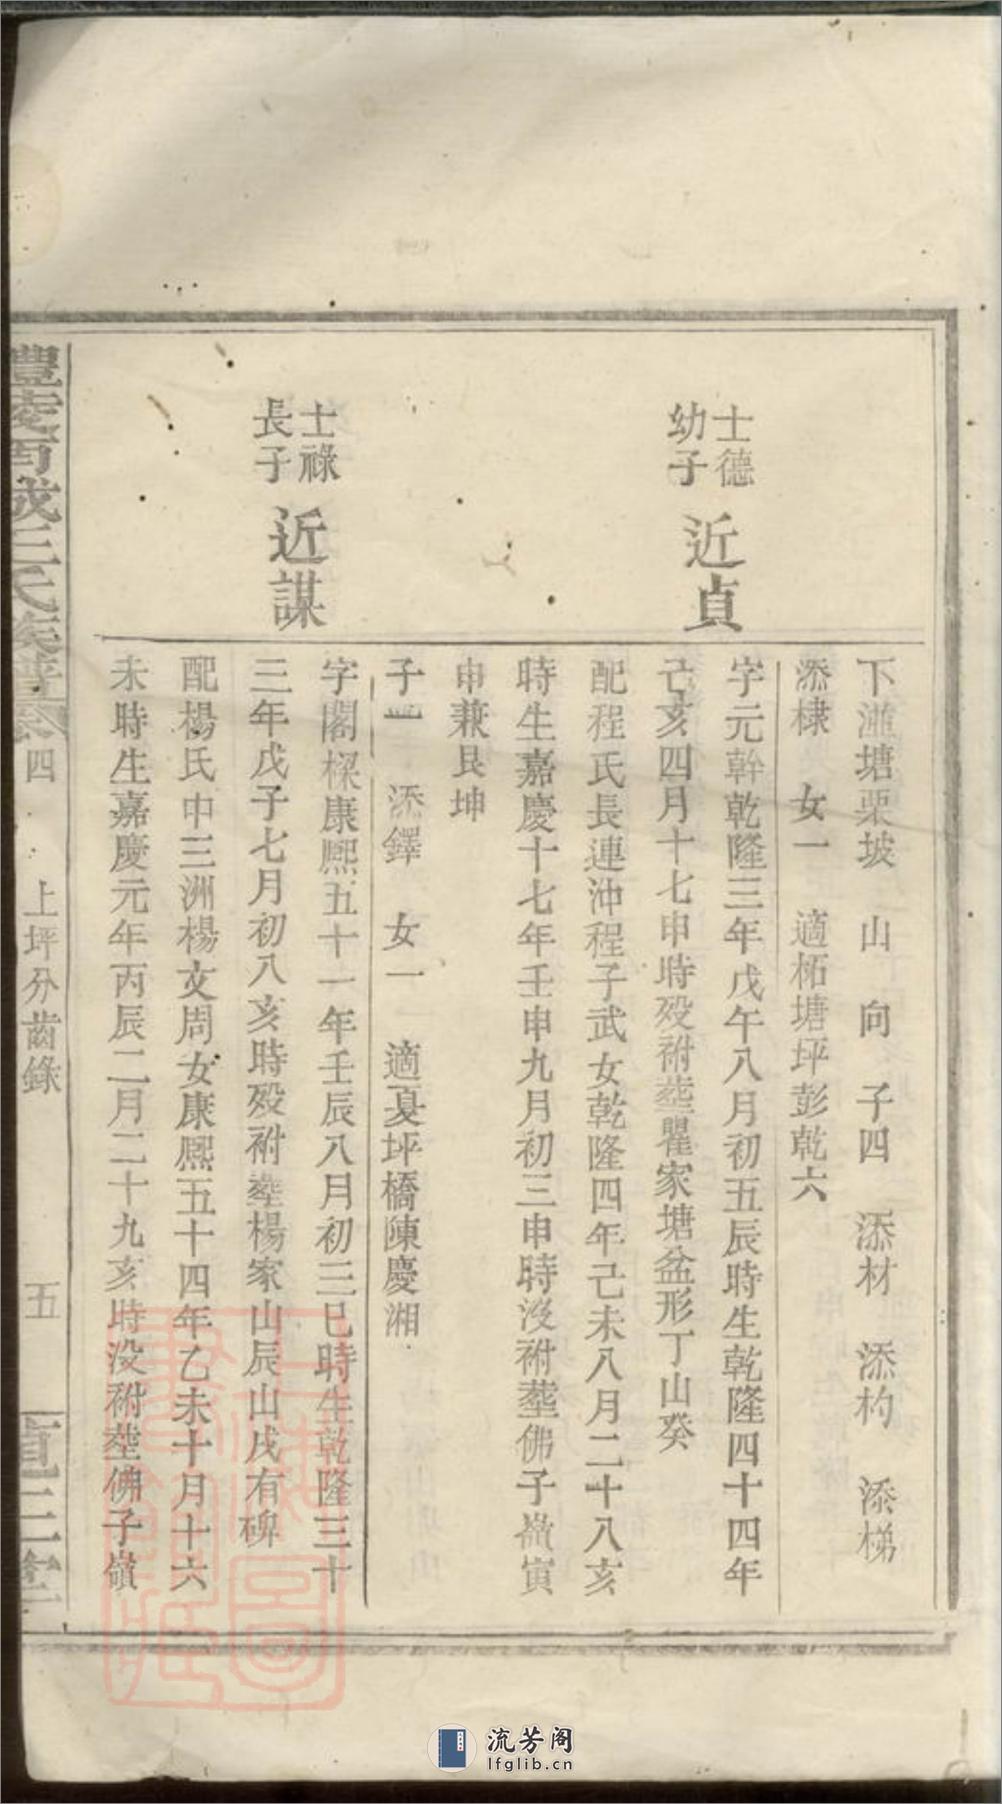 下濨塘栗坡　山　向　子四　添材　添杓　添梯
添棣　女一　適柘塘坪彭乾六
士德
幼子
近貞
字元幹乾隆三年戊午八月初五辰時生乾隆四十四年
己亥四月十七申時殁祔塟瞿家塘盆形丁山癸
配程氏長連沖程子武女乾隆四年己未八月二十八亥
時生嘉慶十七年壬申九月初三申時沒祔塟佛子嶺寅
申兼艮坤
子一　添鐸　女一　適夏坪橋陳慶湘
士祿
長子
近謀
字閣樑康熙五十一年壬辰八月初三巳時生乾隆三十
三年戊子七月初八亥時殁祔塟楊家山辰山戌有碑
配楊氏中三洲楊文周女康熙五十四年乙未十月十六
未時生嘉慶元年丙辰二月二十九亥時没祔塟佛子嶺
醴陵西城王氏族譜卷四　上坪分齒錄　五
流芳阁
lfglib.cn